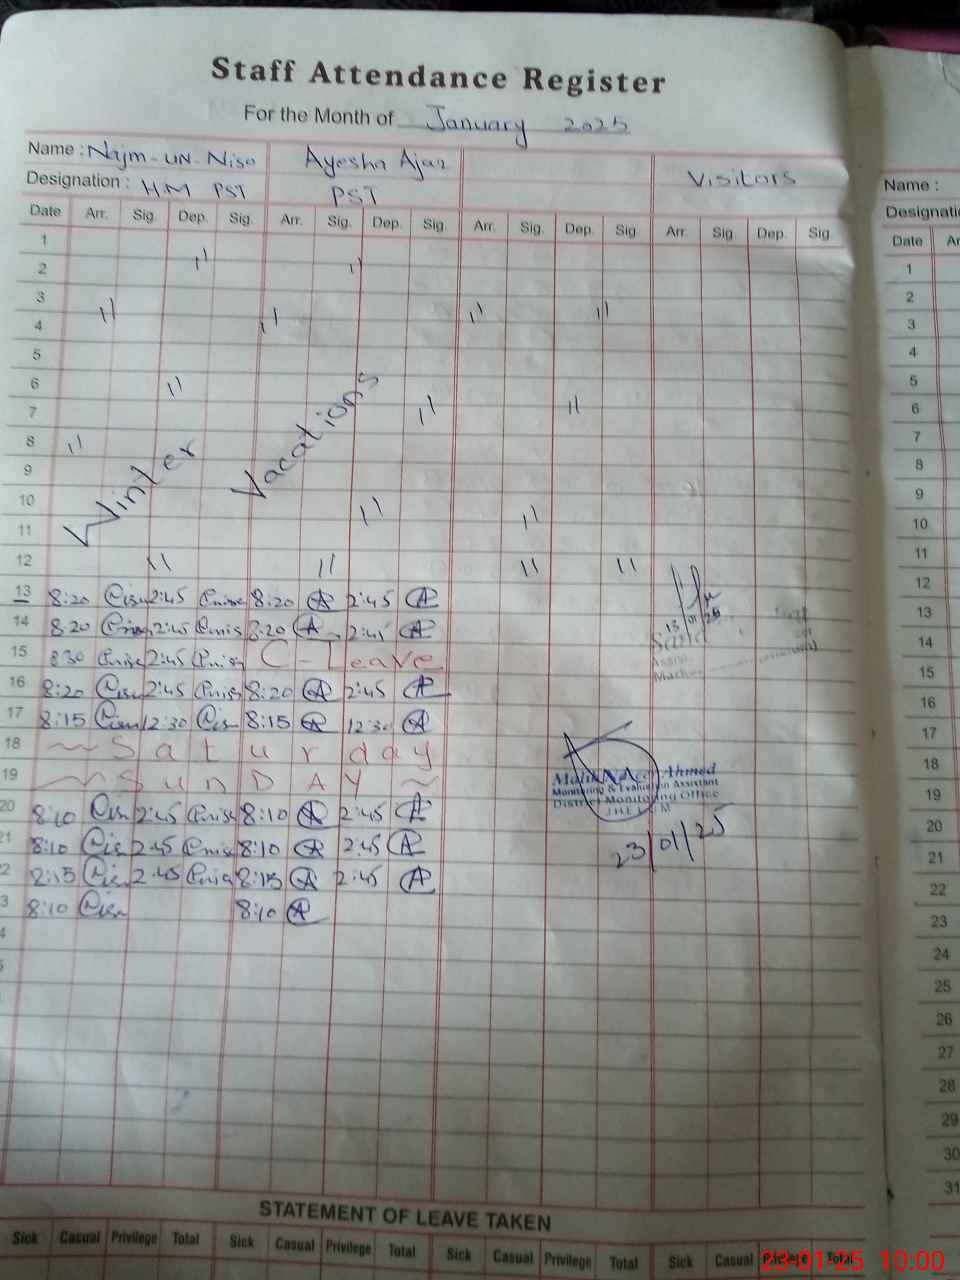 Staff Attendance Register
For the Month of January 2025
Name : Najm-UN-Nisa Ayesha Ajaz Visitors
Designation : HM PST PST
Date Arr. Sig. Dep. Sig. Arr. Sig. Dep. Sig. Arr. Sig. Dep. Sig. Arr. Sig. Dep. Sig.
1
2 " "
3
4 " " " "
5
6 "
7 " "
8 "
9
10 " "
11
Winter Vacations
12 " " " "
13 8:20 2:45 8:20 2:45
14 8:20 2:45 8:20 2:45
15 830 2:45 C-Leave
16 8:20 2:45 8:20 2:45
17 8:15 12:30 8:15 12:30
18 Saturday
19 SUNDAY
20 8:10 2:45 8:10 2:45
21 8:10 2:45 8:10 2:45
2 8:15 2:45 8:15 2:45
3 8:10 8:10
4
13 01 25
Ahmed
Monitoring & Evaluation Assistant
District Monitoring Office
JHELUM
23/01/25
STATEMENT OF LEAVE TAKEN
Sick Casual Privilege Total Sick Casual Privilege Total Sick Casual Privilege Total Sick Casual Privilege Total
Name :
Designati
Date Ar
1
2
3
4
5
6
7
8
9
10
11
12
13
14
15
16
17
18
19
20
21
22
23
24
25
26
27
28
29
30
31
23-01-25 10:00